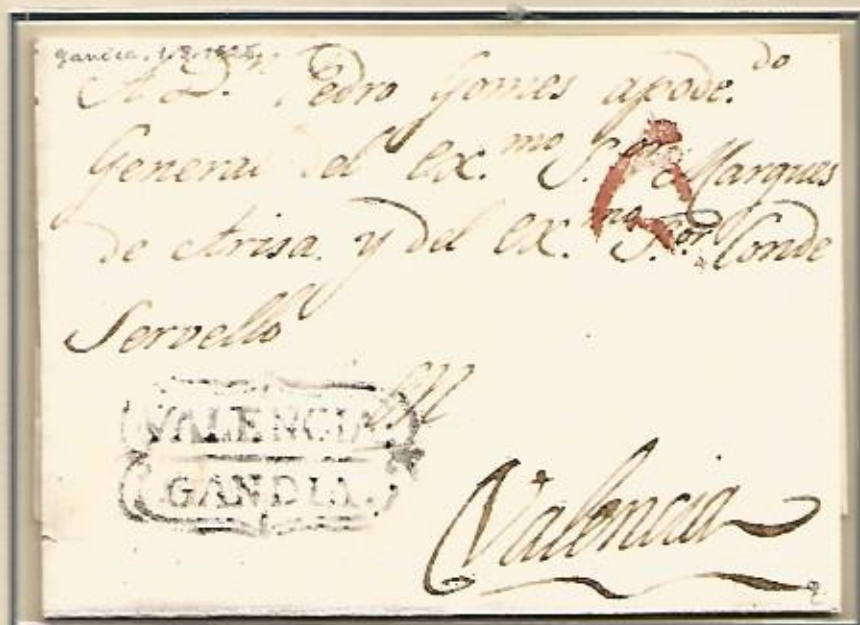 A D.n Pedro Gomes apode.do
General del Ex.mo S.or Marques
de Arisa. y del Ex.mo S.or Conde
Servello
VALENCIA
GANDIA.
Valencia